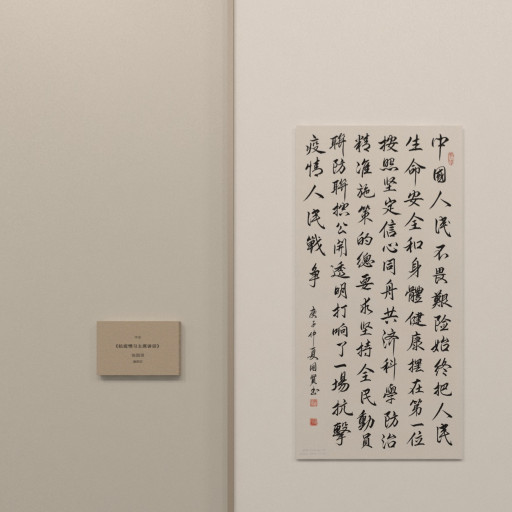 中國人民不畏艱险始终把人民
生命安全和身體健康摆在第一位
按照坚定信心同舟共济科學防治
精准施策的總要求坚持全民動員
聨防聨控公開透明打响了一場抗擊
疫情人民戰争
庚子仲夏國賢书